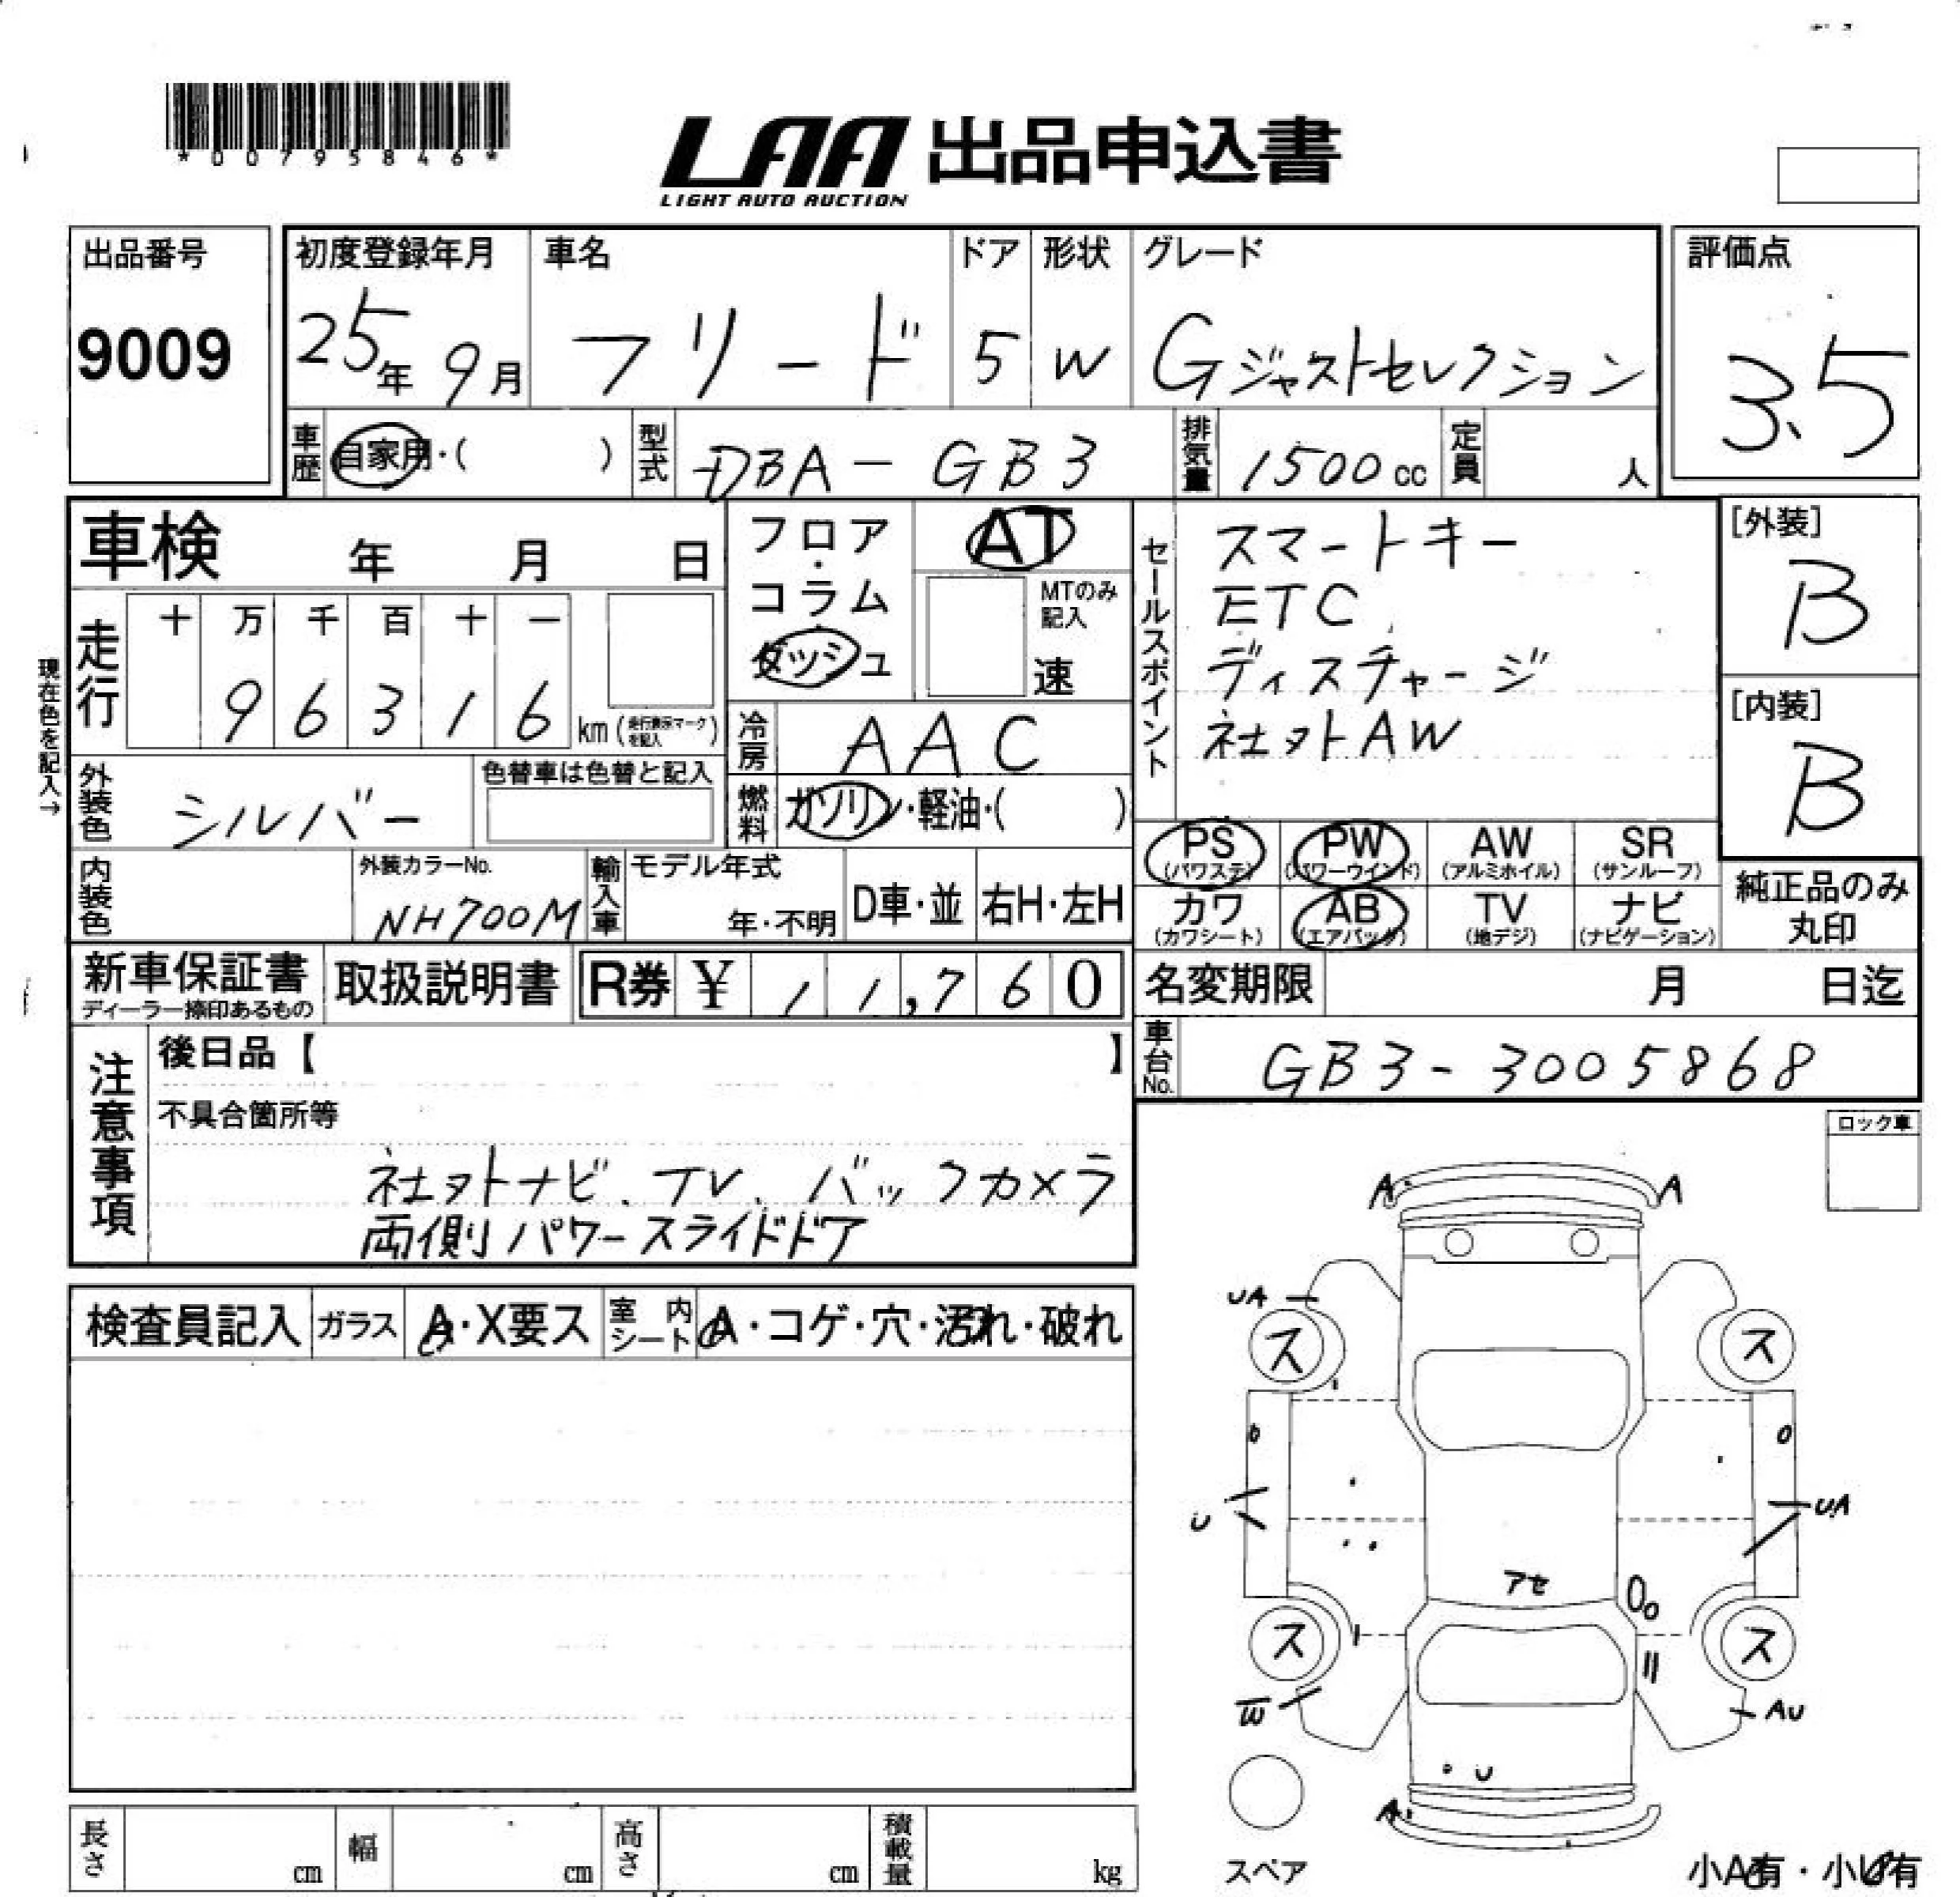 *00795846*
LAA 出品申込書
LIGHT AUTO AUCTION
出品番号
9009
初度登録年月
25年 9月
車名
フリード
ドア
5
形状
W
グレード
Gジャストセレクション
評価点
3.5
車歴 自家用・( )
型式 DBA-GB3
排気量 1500cc
定員 人
車検 年 月 日
フロア・コラム・ダッシュ
AT
MTのみ記入
速
セールスポイント
スマートキー
ETC
ディスチャージ
社外AW
[外装]
B
[内装]
B
現在色を記入→
走行
十 万 千 百 十 一
9 6 3 1 6 km(走行表示マークを記入)
冷房 AAC
外装色 シルバー
色替車は色替と記入
燃料 ガソリン・軽油・( )
PS (パワステ)
PW (パワーウインド)
AW (アルミホイル)
SR (サンルーフ)
カワ (カワシート)
AB (エアバック)
TV (地デジ)
ナビ (ナビゲーション)
純正品のみ丸印
内装色
外装カラーNo.
NH700M
輸入車
モデル年式
年・不明
D車・並
右H・左H
新車保証書
ディーラー捺印あるもの
取扱説明書
R券 ¥ 11,760
名変期限 月 日迄
車台No. GB3-3005868
注意事項
後日品【 】
不具合箇所等
社外ナビ、TV、バックカメラ
両側パワースライドドア
ロック車
検査員記入
ガラス A・X要ス
室内シート A・コゲ・穴・汚れ・破れ
A A
UA
ス ス
U UA
アセ
ス ス
W AU
U
A
スペア
小A有・小U有
長さ cm
幅 cm
高さ cm
積載量 kg